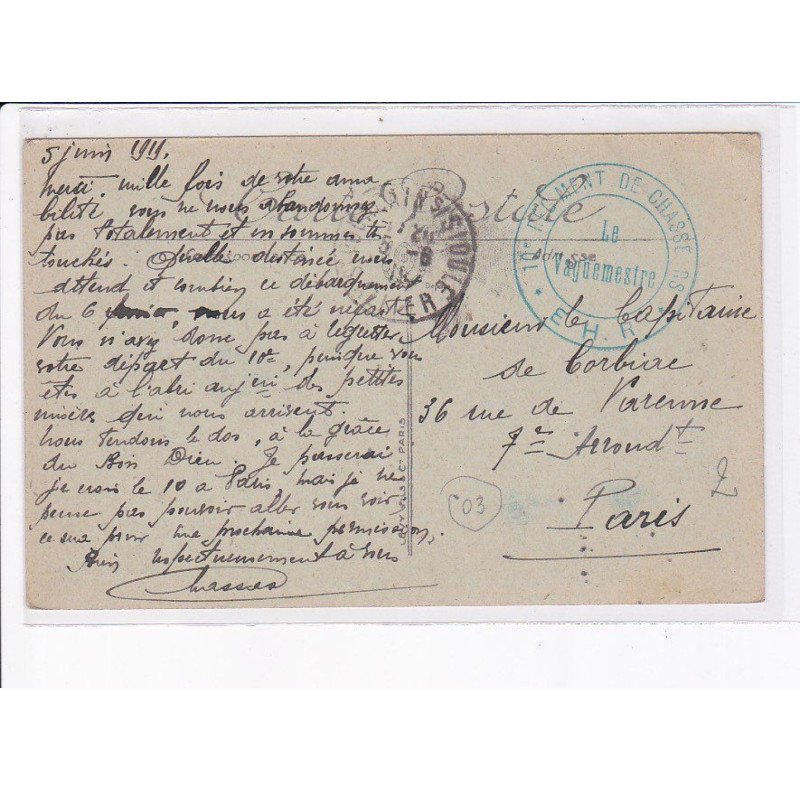 5 juin 1919.
Merci mille fois de votre ama
bilité vous ne nous abandonnez
pas totalement et en sommes
touchés. Quelle destinée nous
attend et combien ce débarquement
du 6 nous a été néfaste
Vous n'avez donc pas à regretter
votre départ du 10e, puisque vous
êtes à l'abri aujourd'hui des petites
misères qui nous arrivent.
Nous tendons le dos, à la grâce
du Bon Dieu. Je passerai
je crois le 10 à Paris mais je ne
pense pas pouvoir aller vous voir
ce sera pour une prochaine permission.
Bien respectueusement à vous
Carte Postale
10e REGIMENT DE CHASSEURS
Le
Vaguemestre
E.H.R.
Monsieur le Capitaine
de Corbiac
36 rue de Varenne
7e Arrondt
Paris
C03
LEVY FILS & Cie PARIS